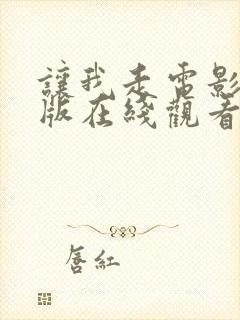 讓我走電影
版在綫觀看
唇紅